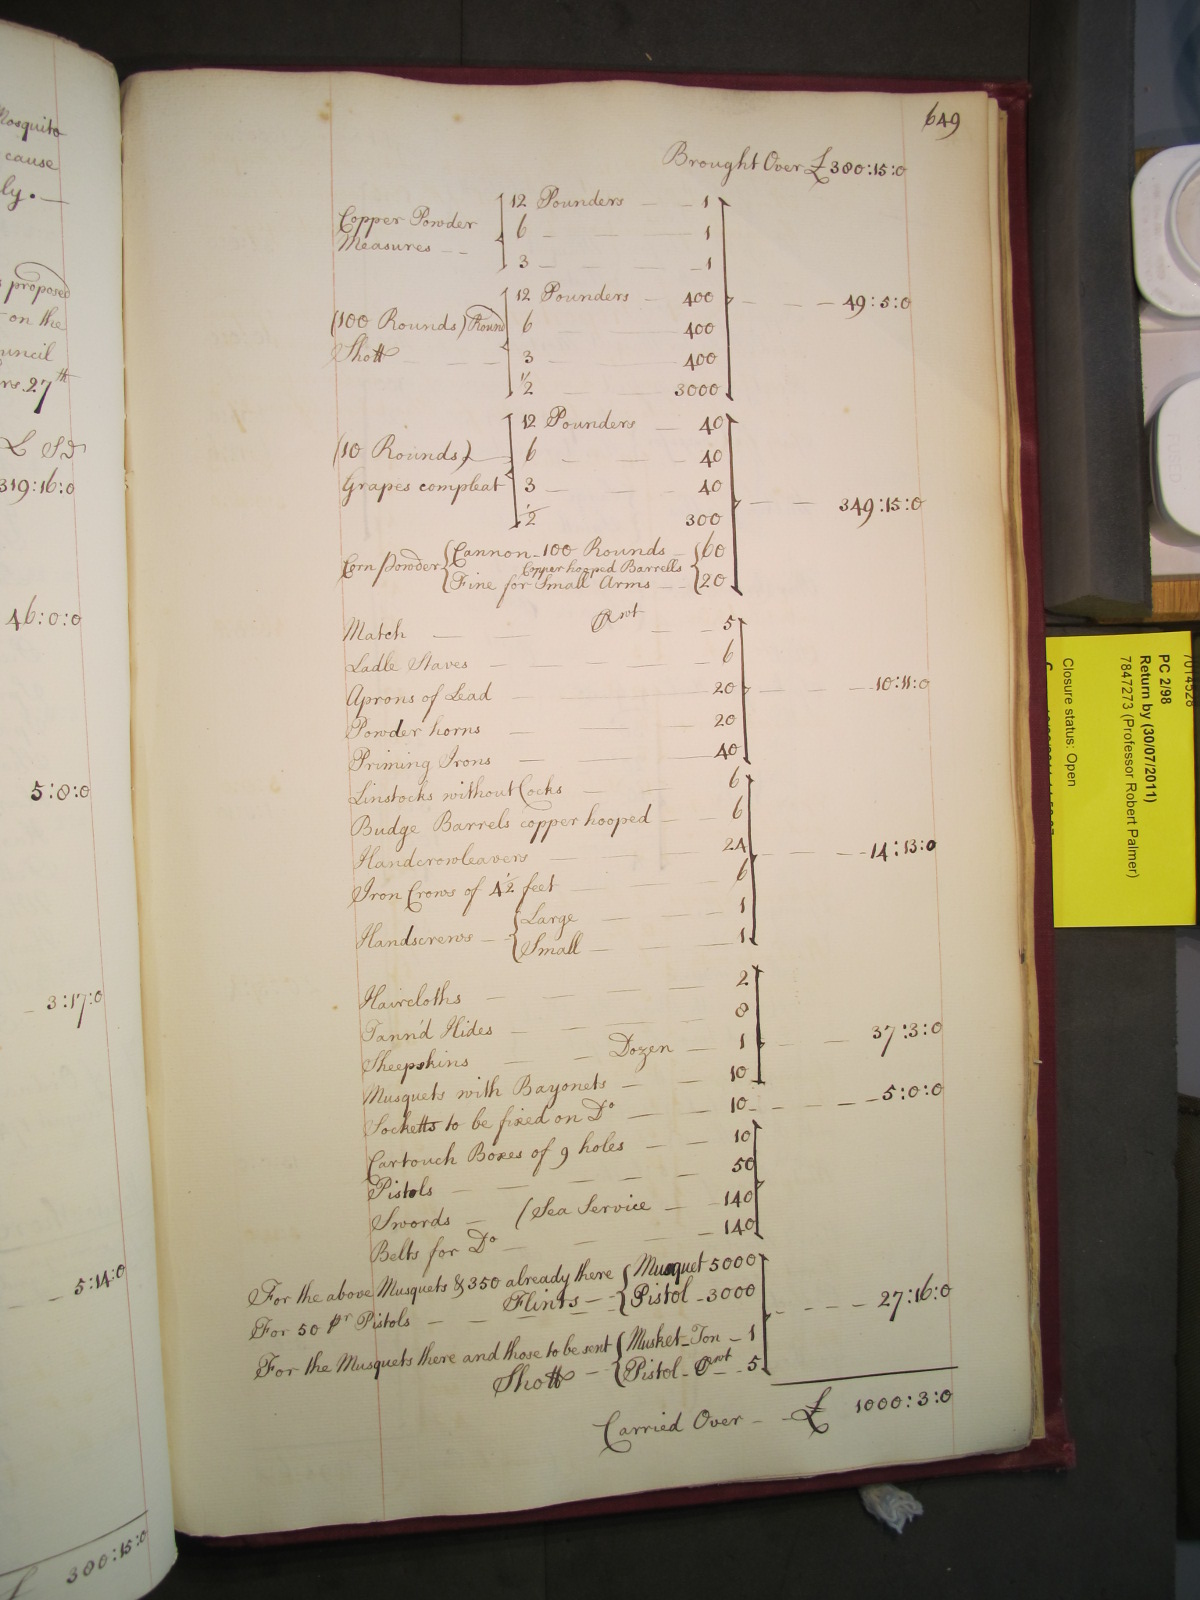 Mosquito
cause
ly. —
proposed
on the
uncil
27th
£ S D
319:16:0
46:0:0
5:8:0
3:17:0
5:14:0
£ 380:15:0
649
Brought Over £ 380:15:0
Copper Powder Measures { 12 Pounders — 1
6 — 1
3 — 1
(100 Rounds) Round Shott { 12 Pounders — 400 — 49:5:0
6 — 400
3 — 400
1/2 — 3000
(10 Rounds) Grapes compleat { 12 Pounders — 40
6 — 40
3 — 40 — 349:15:0
1/2 300
Corn Powder { Cannon - 100 Rounds — { 60
Copper hooped Barrells
Fine for Small Arms — 20
Match — Cwt — 5
Ladle Staves — 6
Aprons of Lead — 20 — 10:11:0
Powder horns — 20
Priming Irons — 40
Linstocks without Cocks — 6
Budge Barrels copper hooped — 6
Handcrowleavers — 24 — 14:13:0
Iron Crows of 4 1/2 feet — 6
Handscrews — { Large — 1
Small — 1
Haircloths — 2
Tann'd Hides — 8
Sheepskins — Dozen — 1 — 37:3:0
Musquets with Bayonets — 10
Socketts to be fixed on Do — 10 — 5:0:0
Cartouch Boxes of 9 holes — 10
Pistols — 50
Swords — (Sea Service — 140
Belts for Do — 140
For the above Musquets & 350 already there { Musquet 5000
For 50 pr Pistols — Flints — { Pistol - 3000 — 27:16:0
For the Musquets there and those to be sent { Musket - Ton - 1
Shott — { Pistol - Cwt - 5
Carried Over — £ 1000:3:0
7014528
PC 2/98
Return by (30/07/2011)
7847273 (Professor Robert Palmer)
Closure status: Open